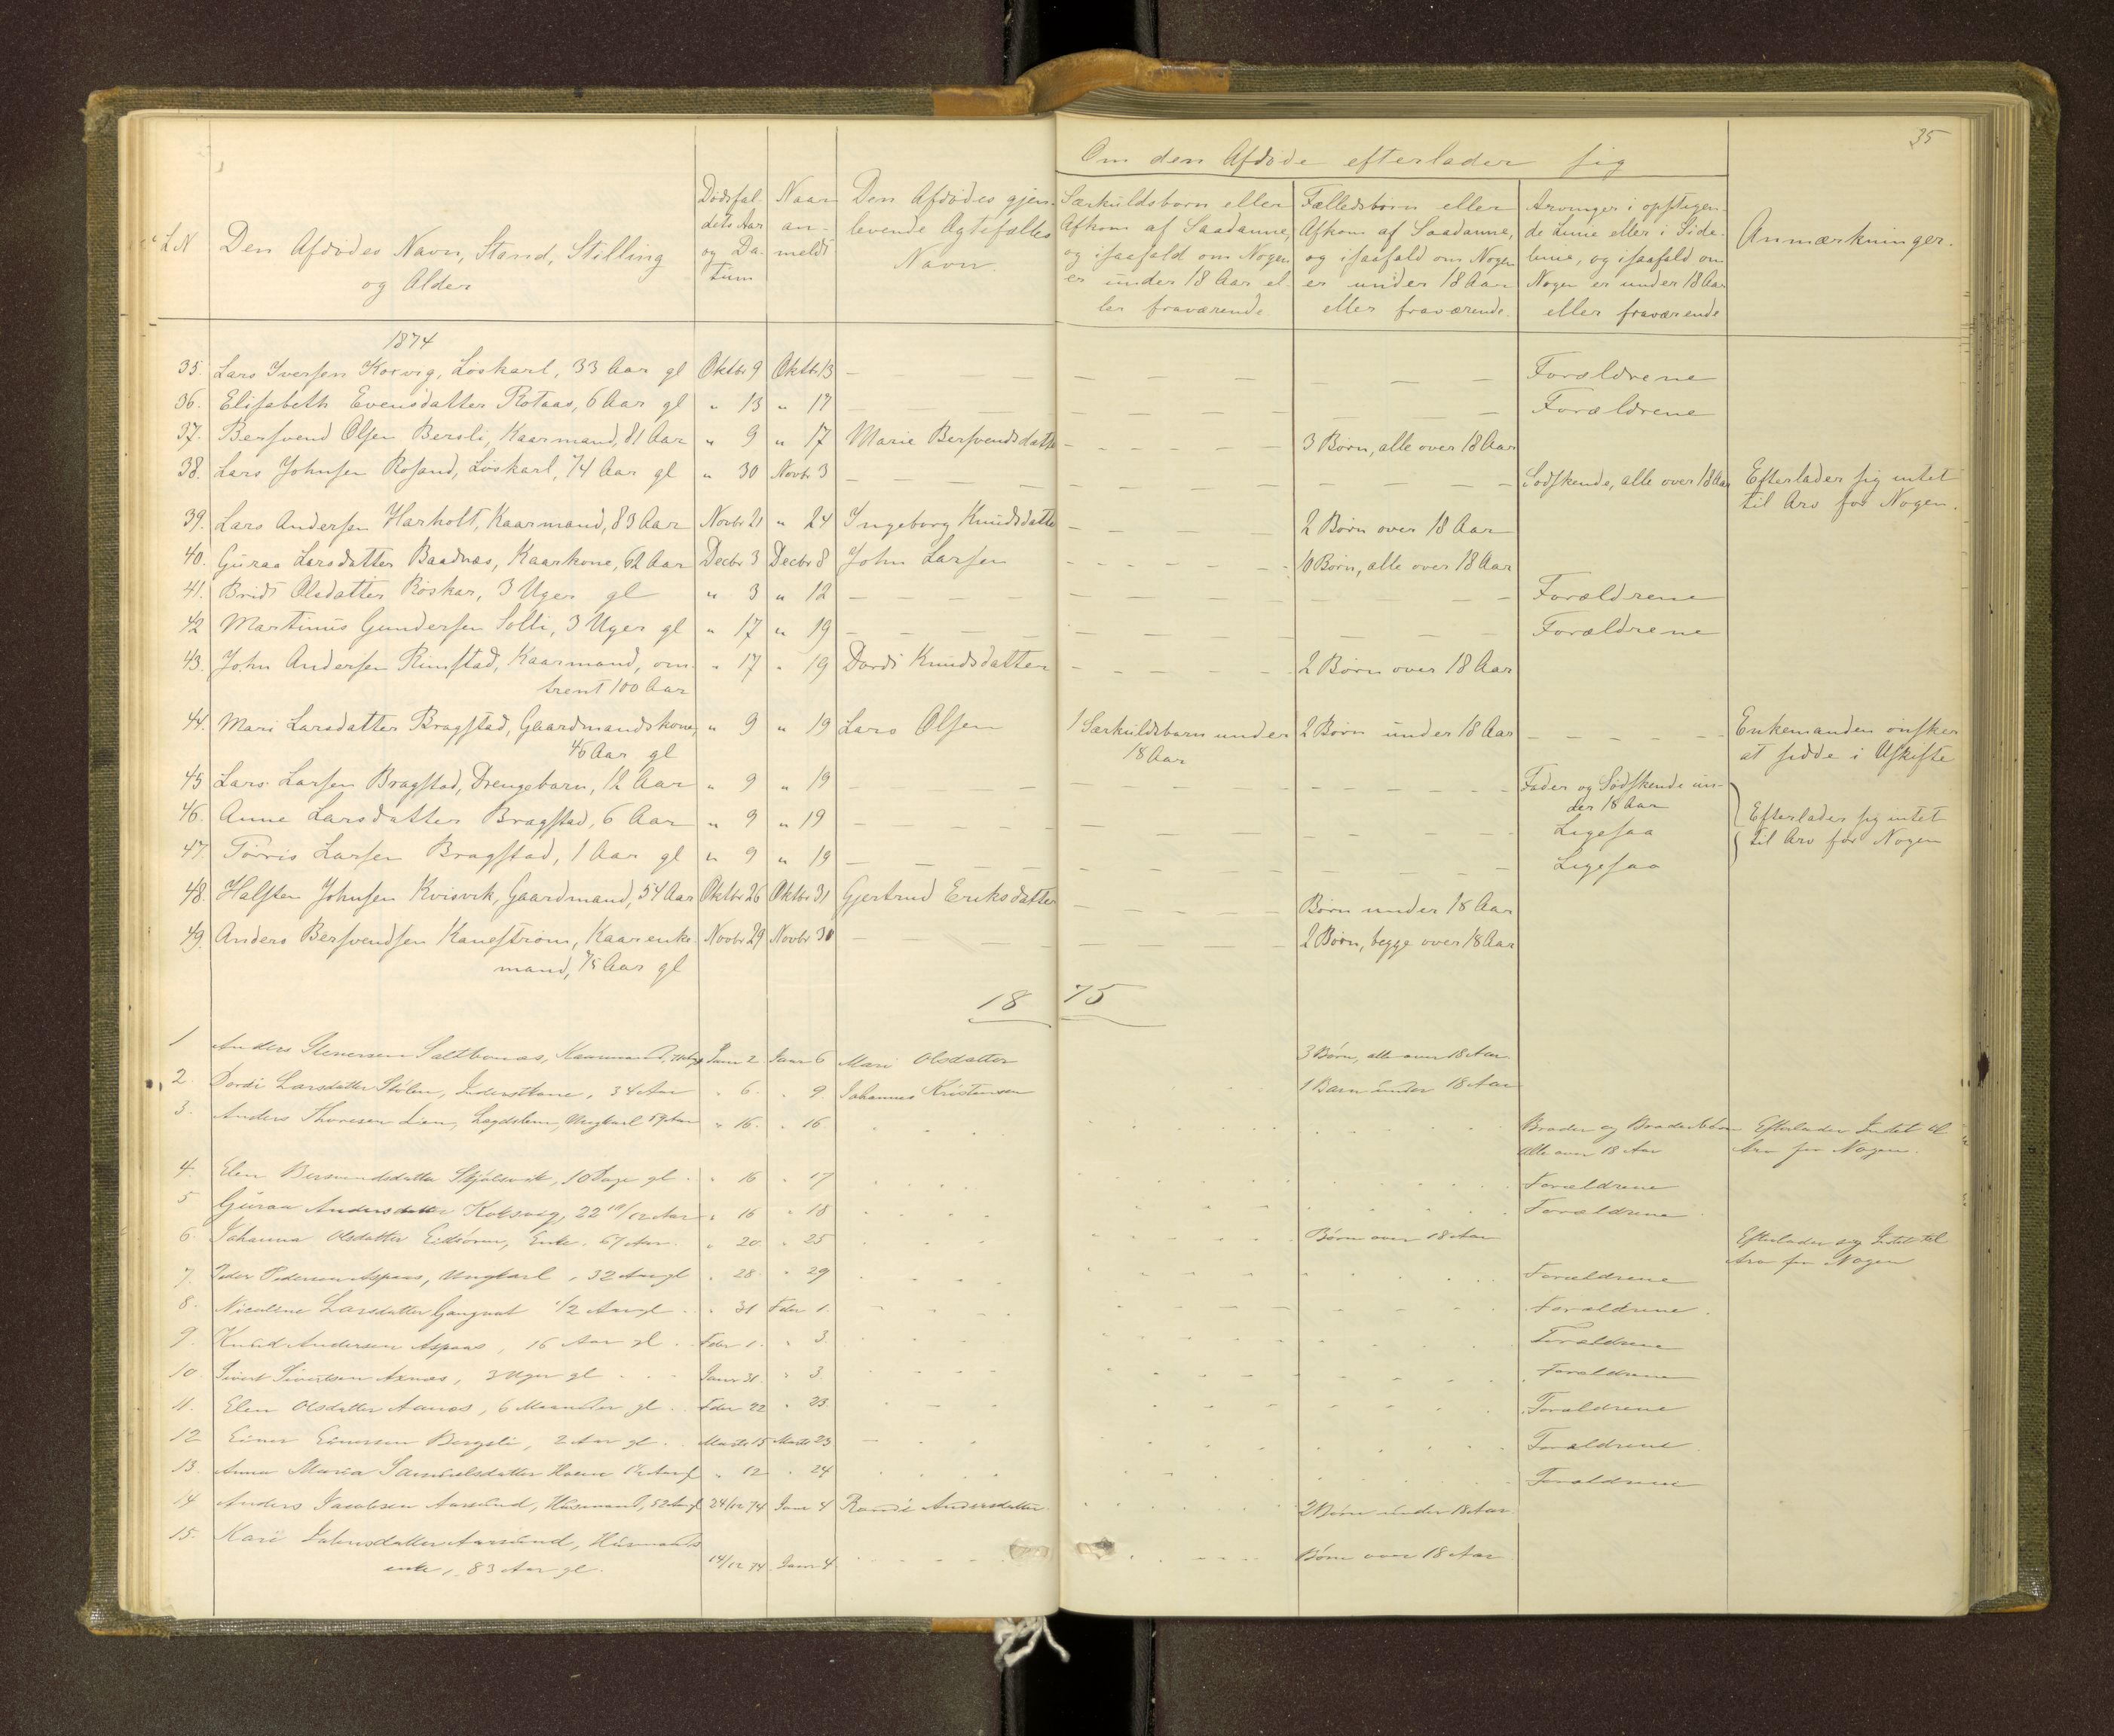 35
Om den Afdøde efterlader sig
LN
Den Afdødes Navn, Stand, Stilling
og Alder
Dødsfal-
dets Aar
og Da-
tum
Naar
an-
meldt
Den Afdødes gjen-
levende Ægtefælles
Navn.
Særkuldsbørn eller
Afkom af Saadanne,
og isaafald om Nogen
er under 18 Aar el-
ler fraværende
Fælledsbørn eller
Afkom af Saadanne,
og isaafald om Nogen
er under 18 Aar
eller fraværende.
Arvinger i opstigen-
de Linie eller i Side-
linie, og isaafald om
Nogen er under 18 Aar
eller fraværende
Anmærkninger.
1874
35. Lars Iversen Korvig, Løskarl, 33 Aar gl Oktbr 9 Oktbr 13 — Forældrene
36. Elisabeth Evensdatter Rotaas, 6 Aar gl " 13 " 17 — Forældrene
37. Bersvend Olsen Bersli, Kaarmand, 81 Aar " 9 " 17 Marie Bersvendsdatter — 3 Børn, alle over 18 Aar
38. Lars Johnsen Rosand, Løskarl, 74 Aar gl " 30 Novbr 3 — Sødskende, alle over 18 Aar Efterlader sig intet
til Arv for Nogen.
39. Lars Andersen Harholt, Kaarmand, 83 Aar Novbr 21 " 24 Ingeborg Knudsdatter — 2 Børn over 18 Aar
40. Guraa Larsdatter Baadnæs, Kaarkone, 62 Aar Decbr 3 Decbr 8 John Larsen — 10 Børn, alle over 18 Aar
41. Bridt Olsdatter Røskar, 3 Uger gl " 3 " 12 — Forældrene
42 Martinus Gundersen Solli, 3 Uger gl " 17 " 19 — Forældrene
43. John Andersen Rimstad, Kaarmand, om- " 17 " 19 Dordi Knudsdatter — 2 Børn over 18 Aar
trent 100 Aar
44. Mari Larsdatter Bragstad, Gaardmandskone, " 9 " 19 Lars Olsen 1 Særkuldsbarn under 2 Børn under 18 Aar — Enkemanden ønsker
46 Aar gl 18 Aar at sidde i Uskifte
45 Lars Larsen Bragstad, Drengebarn, 12 Aar " 9 " 19 — Fader og Sødskende un-
der 18 Aar
46. Anne Larsdatter Bragstad, 6 Aar " 9 " 19 — Ligesaa Efterlader sig intet
til Arv for Nogen
47. Tørris Larsen Bragstad, 1 Aar gl " 9 " 19 — Ligesaa
48. Halsten Johnsen Kvisvik, Gaardmand, 54 Aar Oktbr 26 Oktbr 31 Gjertrud Eriksdatter — Børn under 18 Aar
49. Anders Bersvendsen Kanestrøm, Kaarenke- Novbr 29 Novbr 30 — 2 Børn, begge over 18 Aar
mand, 75 Aar gl
1875
1 Anders Saltbonæs, Kaarmand, Janr 2 Janr 6 Mari Olsdatter 3 Børn, alle over 18 Aar
2. Dordi Larsdatter Stølen, Inderstkone, 34 Aar " 6. " 9. Johannes Kristensen 1 Barn under 18 Aar
3. Anders Thoresen Lien, Lægdslem, Ungkarl 59 Aar " 16. " 16 Broder og
alle over 18 Aar Efterlader Intet til
Arv for Nogen.
4. Elen 10 Dage gl. " 16 " 17 Forældrene
5 Guraa Andersdatter Korsvig, 22 10/12 Aar " 16 " 18 Forældrene
6. Johanna Olsdatter Eidsøren, Enke, 67 Aar " 20. " 25 Børn over 18 Aar Efterlader sig Intet til
Arv for Nogen
7. Peder Pedersen Aspaas, Ungkarl, 32 Aar gl " 28. " 29 Forældrene
8. Nicoline Larsdatter 1/2 Aar gl " 31 Febr 1. Forældrene.
9. Knud Andersen Aspaas, 16 Aar gl. Febr 1. " 3. Forældrene
10. Sivert Sivertsen Axnæs, 3 Uger gl Janr 31. " 3. Forældrene
11. Elen Olsdatter Aanæs, 6 Maaneder gl. Febr 22 " 23. Forældrene
12 Einer Einersen Bergsli, 2 Aar gl. Marts 15 Marts 23 — Forældrene.
13. Anna Maria Samuelsdatter " 12 " 24 Forældrene
14 Anders Jacobsen Aarsund, Husmand, 52 Aar gl 24/12 74 Janr 4 Randi Andersdatter 2 Børn under 18 Aar.
15. Kari Aarsund, Husmands
enke, 83 Aar gl. 14/12 74. Janr 4. Børn over 18 Aar